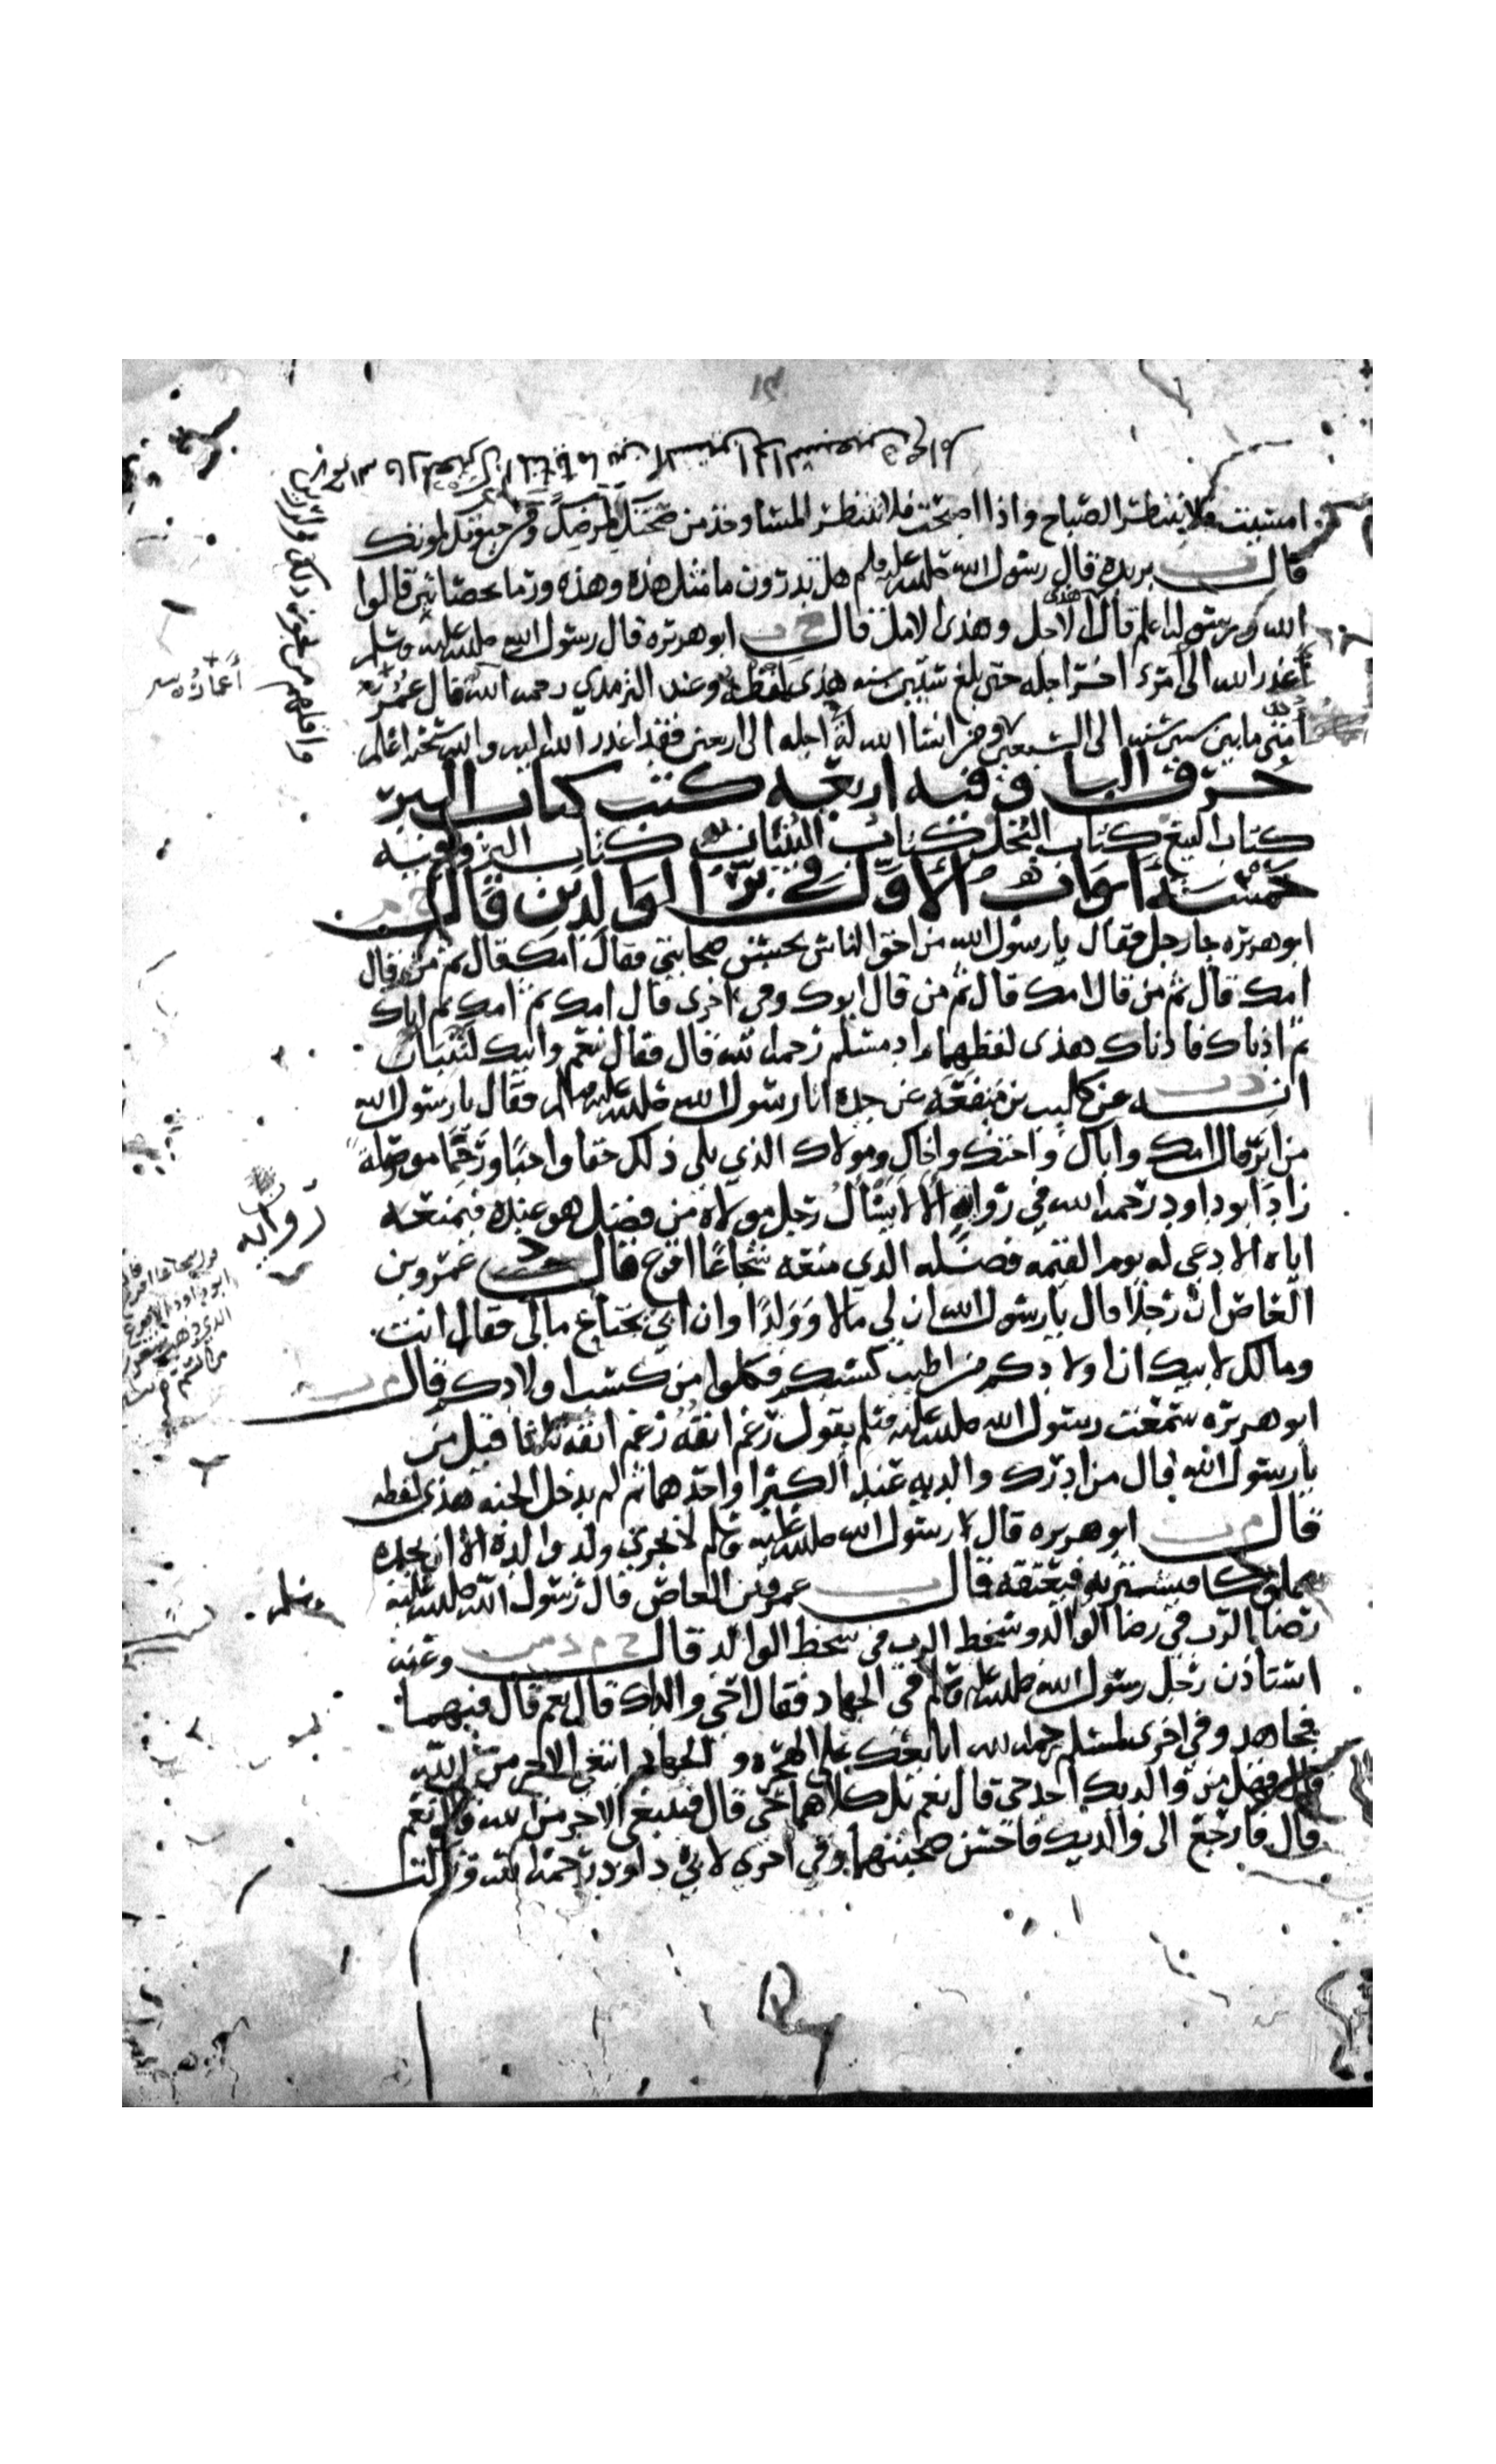 امسيت فلا تنتظر الصباح واذا اصبحت فلا تنتظر المسا وخذ من صحتك لمرضك ومن حيوتك لموتك
قال ت بريده قال رسول الله صلى الله عليه وسلم هل تدرون ما مثل هذه وهذه ورما بحصاتين قالوا
الله ورسوله اعلم قال هذى الاجل وهذى الامل قال خ ت ابو هريره قال رسول الله صلى الله عليه وسلم
أعذر الله الى امرء اخر اجله حتى بلغ ستين سنه هذى لفظه وعند الترمدي رحمه الله قال عمر
أمتى ما بين ستين سنه الى السبعين
حرف البا وفيه اربعه كتب كتاب البر
كتاب البيع كتاب البخل كتاب البنيان كتاب البر وفيه
خمسه أبواب الأول في بر الوالدين قال خ م
ابو هريره جا رجل فقال يا رسول الله من احق الناس بحسن صحابتي فقال امك قال ثم من قال
امك قال ثم من قال امك قال ثم من قال ابوك وفى اخرى قال امك ثم امك ثم اباك
ثم ادناك فادناك هذى لفظهما زاد مسلم رحمه الله قال فقال نعم وابيك لتنبان
انه د عن كليب بن منفعه عن جده اتا رسول الله صلى الله عليه وسلم فقال يا رسول الله
من ابر قال امك واباك واختك واخاك ومولاك الذي يلى ذلك حقا واجبا ورحما موصوله
زاد ابو داود رحمه الله في روايه ألا لا يسأل رجل مولاه من فضل هو عنده فيمنعه
اياه الا دعى له يوم القيمه فضله الذي منعه شجاعا اقرع قال د عمرو بن
العاص ان رجلا قال يا رسول الله ان لي مالا وولدا وان ابي يحتاج مالي فقال انت
ومالك لابيك ان اولادكم من اطيب كسبكم فكلوا من كسب اولادكم قال م ت
ابو هريره سمعت رسول الله صلى الله عليه وسلم يقول رغم انفه رغم انفه ثلاثا قيل من
يا رسول الله قال من ادرك والديه عند الكبر او احدهما ثم لم يدخل الجنه هذى لفظه
قال م ت ابو هريره قال رسول الله صلى الله عليه وسلم لا يجزي ولد والده الا ان يجده
مملوكا فيشتريه فيعتقه قال ت عمرو بن العاص قال رسول الله صلى الله عليه
وسلم
رضا الرب في رضا الوالد وسخط الرب في سخط الوالد قال خ م د س ت وعنه
استاذن رجل رسول الله صلى الله عليه وسلم في الجهاد فقال احي والداك قال نعم قال ففيهما
فجاهد وفي اخرى لمسلم رحمه الله ابايعك على الهجره والجهاد ابتغي الاجر من الله
قال فهل من والديك احد حى قال نعم بل كلاهما حى قال فتبتغى الاجر من الله قال نعم
قال فارجع الى والديك فاحسن صحبتهما وفي اخرى لابى داود رحمه الله وتركت
أعماره
روايه